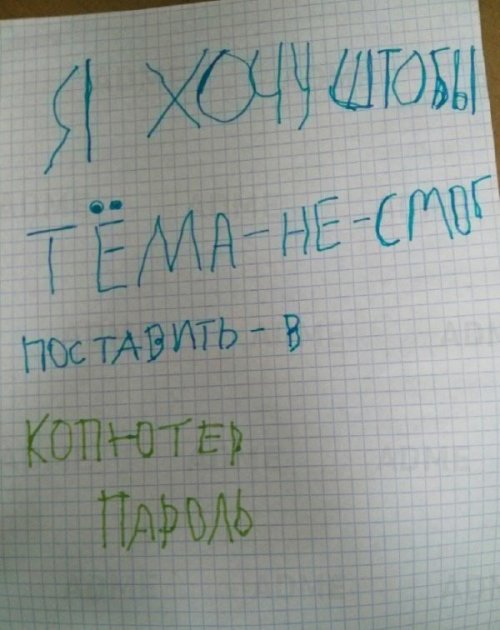 Я ХОЧУ ШТОБЫ
ТЁМА-НЕ-СМОГ
ПОСТАВИТЬ-В
КОПЮТЕР
ПАРОЛЬ